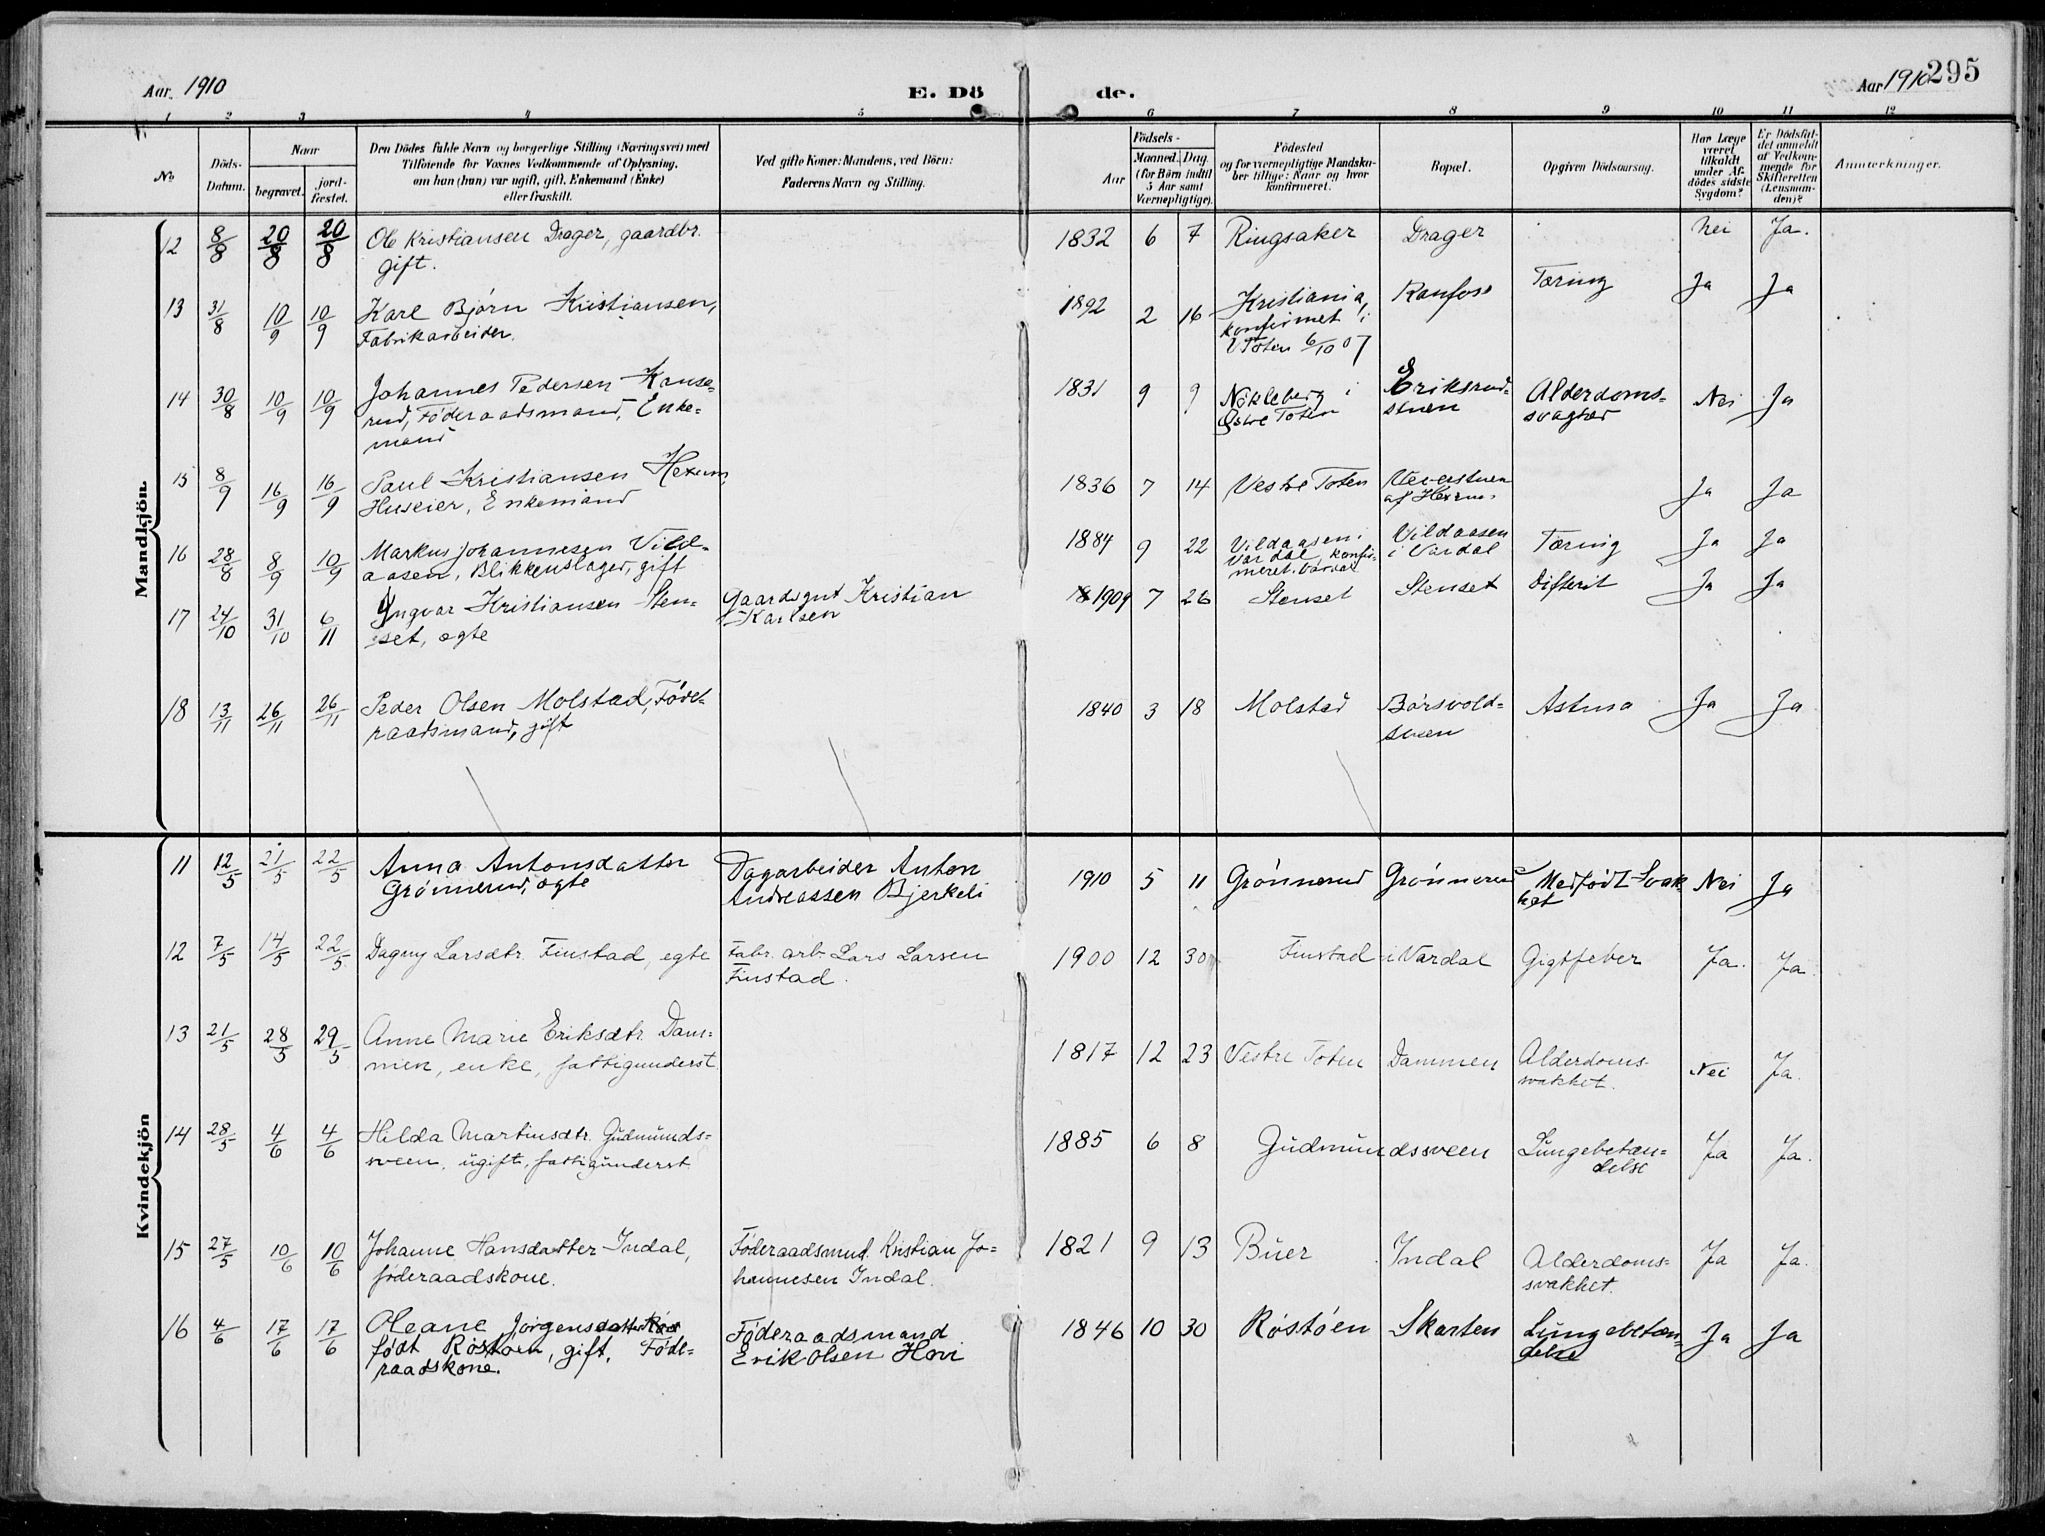 Aar. 1910 E. Dö de. Aar 1910 295
1 2 3 4 5 6 7 8 9 10 11 12
No
Döds-Datum.
Naar
begravet.
jord-fæstet.
Den Dödes fulde Navn og borgerlige Stilling (Næringsvei) med
Tilföiende for Voxnes Vedkommende af Oplysning,
om han (hun) var ugift, gift, Enkemand (Enke)
eller fraskilt.
Ved gifte Koner: Mandens, ved Börn:
Faderens Navn og Stilling.
Födsels-
Aar
Maaned. Dag.
(for Börn indtil
5 Aar samt
Værnepligtige).
Födested
og for værnepligtige Mandska-
ber tillige: Naar og hvor
konfirmeret.
Bopæl.
Opgiven Dödsaarsag.
Har Læge
været
tilkaldt
under Af-
dödes sidste
Sygdom?
Er Dödsfal-
det anmeldt
af Vedkom-
mende for
Skifteretten
(Lensman-
den)?
Anmærkninger.
Mandkjön.
12 8/8 20/8 20/8 Ole Kristiansen Drager, gaardbr. 1832 6 7 Ringsaker Drager Nei Ja.
gift.
13 31/8 10/9 10/9 Karl Bjørn Kristiansen, 1892 2 16 Kristiania, Raufoss Tæring Ja Ja
Fabrikarbeider. konfirmet i
V Toten 6/10 07
14 30/8 10/9 10/9 Johannes Pedersen Kause- 1831 9 9 Nøkleberg i Eriksrud- Alderdoms- Nei Ja
rud, Føderaadsmand, Enke- Østre Toten stuen svaghed
mand
15 8/9 16/9 16/9 Paul Kristiansen Hexum, 1836 7 14 Vestre Toten Væverstuen Ja Ja
Huseier, Enkemand af Hexum
16 28/8 8/9 10/9 Markus Johannesen Vild- 1884 9 22 Vildaasen i Vildaasen Tæring Ja Ja
aasen, Blikkenslager, gift Vardal, konfir- i Vardal
meret. Vardal
17 24/10 31/10 6/11 Yngvar Kristiansen Sten- Gaardsgut Kristian 1909 7 26 Stenset Stenset Difterit Ja Ja
set, ægte Karlsen
18 13/11 26/11 26/11 Peder Olsen Molstad, Føde- 1840 3 18 Molstad Børsvold- Astma Ja Ja
raadsmand, gift stuen
Kvindekjön
11 12/5 21/5 22/5 Anna Antonsdatter Dagarbeider Anton 1910 5 11 Grønnerud Grønnerud Medfødt Svak- Nei Ja
Grønnerud, ægte Andreassen Bjerkeli het
12 7/5 14/5 22/5 Dagny Larsdtr. Finstad, egte Fabr. arb. Lars Larsen 1900 12 30 Finstad i Vardal Gigtfeber Ja. Ja
Finstad.
13 21/5 28/5 29/5 Anne Marie Eriksdtr. Dam- 1817 12 23 Vestre Toten Dammen Alderdoms- Nei Ja.
men, enke, fattigunderst. svakhet.
14 28/5 4/6 4/6 Hilda Martinsdtr. Gudmunds- 1885 6 8 Gudmundssveen Lungebetæn- Ja Ja.
sveen, ugift, fattigunderst. delse
15 27/5 10/6 10/6 Johanne Hansdatter Indal, Føderaadsmd. Kristian Jo- 1821 9 13 Buer Indal Alderdoms- Ja Ja.
føderaadskone. hannesen Indal. svakhet.
16 4/6 17/6 17/6 Oleane Jørgensdatter Føderaadsmand 1846 10 30 Røstøen Skarten Lungebetæn- Ja Ja
født Røstøen, gift, Føde- Erik Olsen Hovi delse
raadskone.